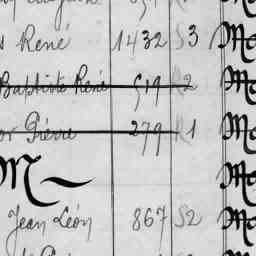 René 1432 S3 Ma
Baptiste René 519 R2 Ma
Pierre 279 R1 Ma
M Ma
Jean Léon 867 S2 Ma